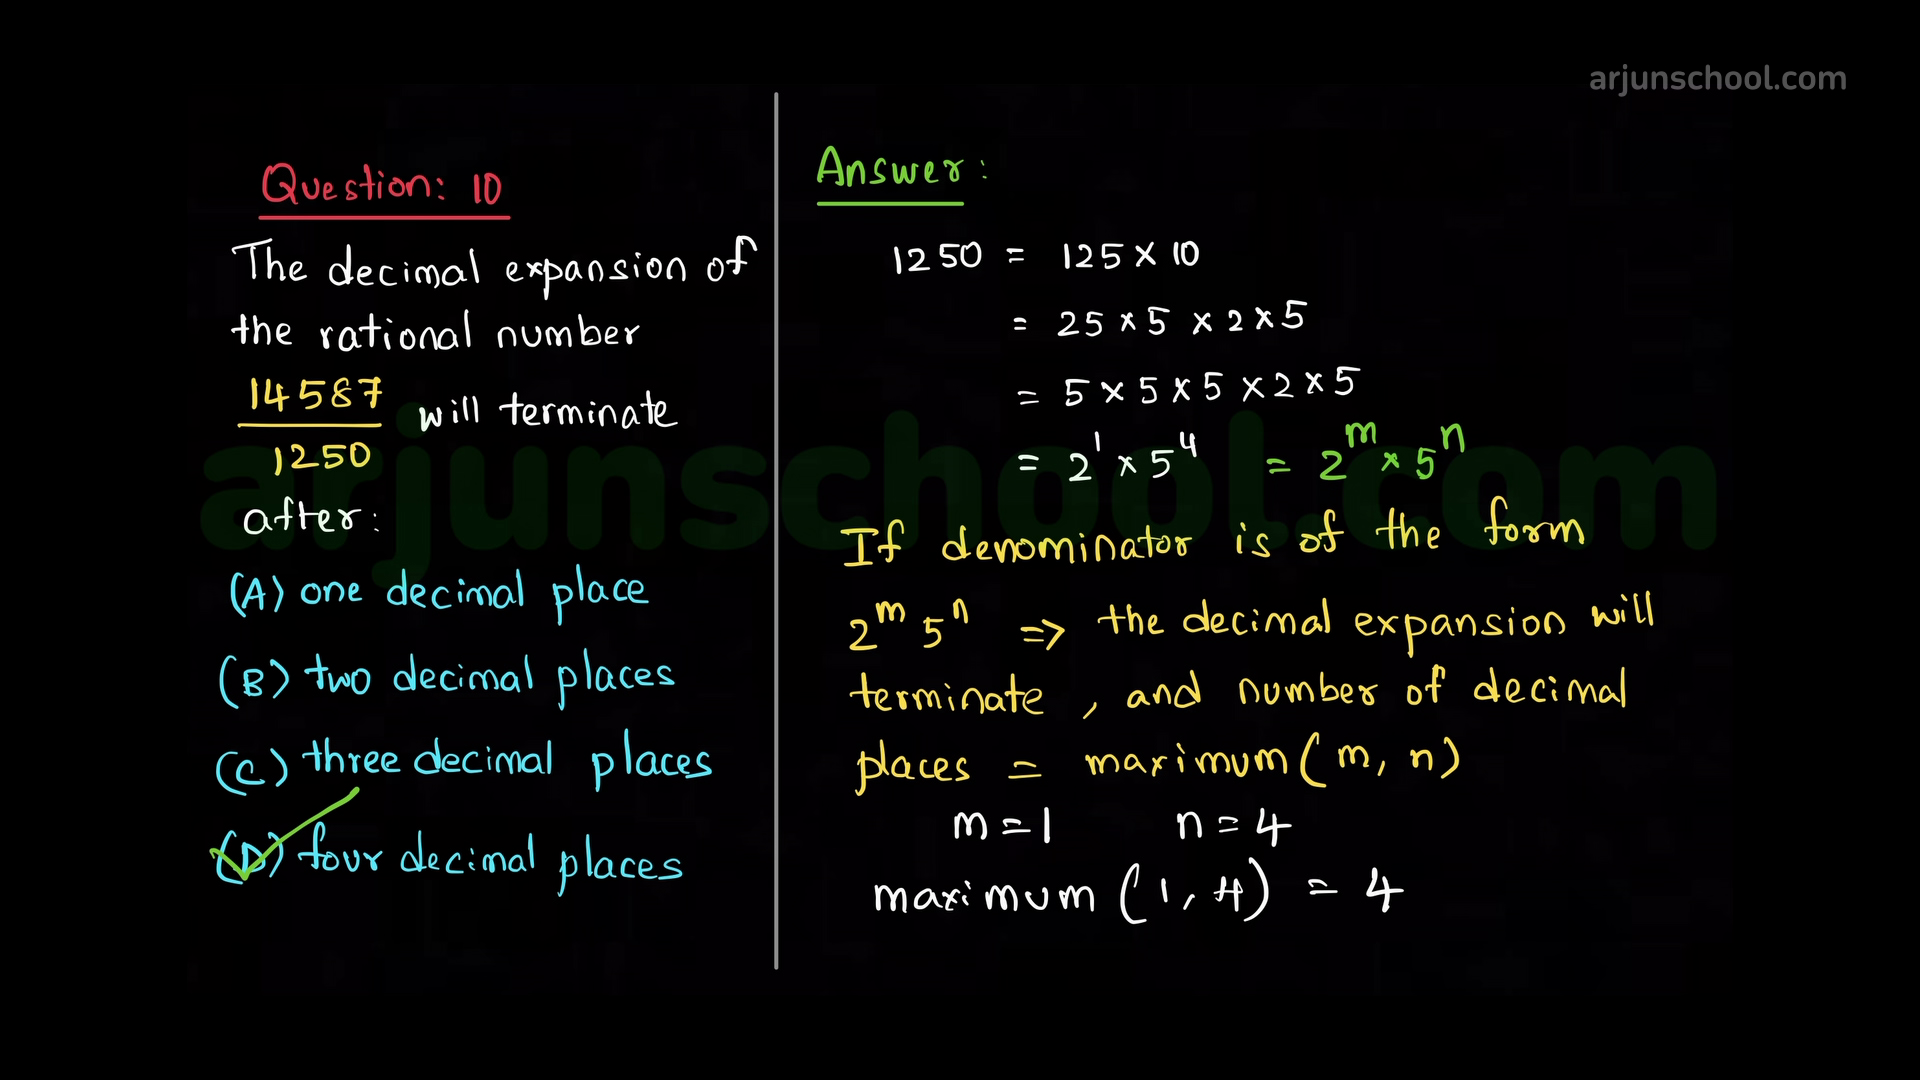 arjunschool.com
Question: 10
The decimal expansion of
the rational number
14587
1250
will terminate
after:
(A) one decimal place
(B) two decimal places
(C) three decimal places
(D) four decimal places
Answer:
1250 = 125 × 10
= 25 × 5 × 2 × 5
= 5 × 5 × 5 × 2 × 5
= 2¹ × 5⁴ = 2ᵐ × 5ⁿ
If denominator is of the form
2ᵐ 5ⁿ ⇒ the decimal expansion will
terminate, and number of decimal
places = maximum(m, n)
m = 1 n = 4
maximum (1, 4) = 4
arjunschool.com